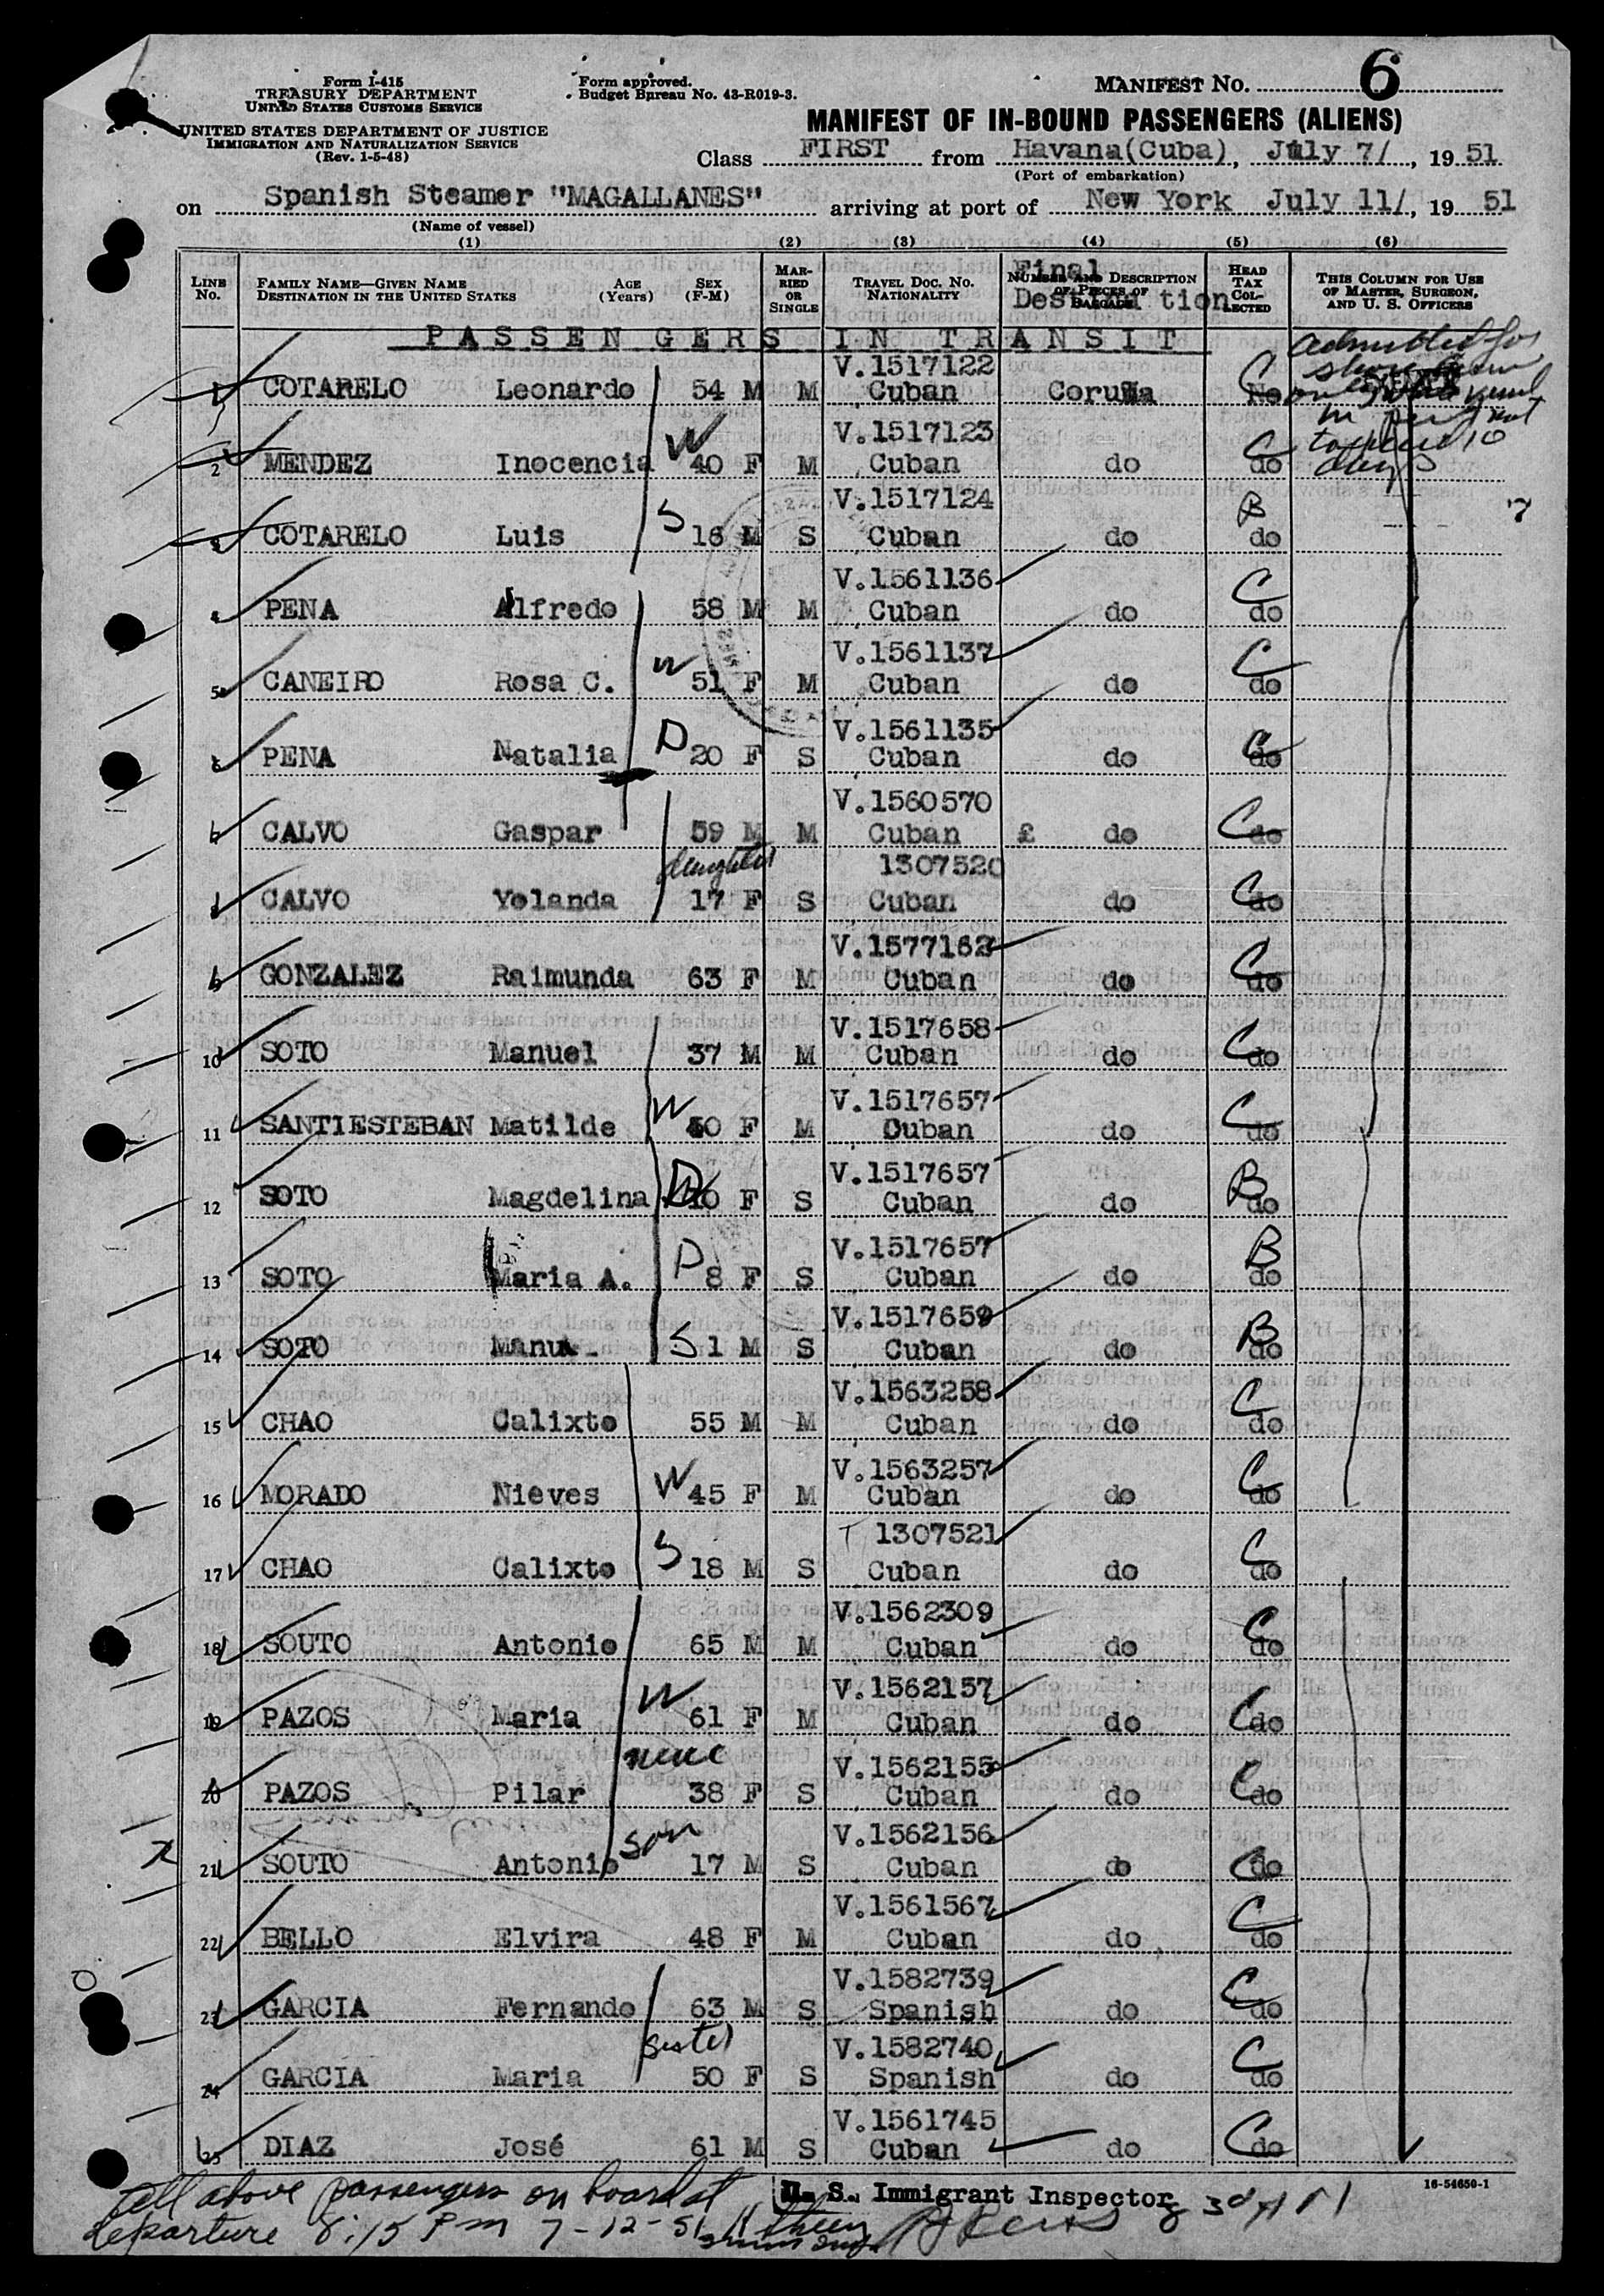 Form I-415
TREASURY DEPARTMENT
UNITED STATES CUSTOMS SERVICE
UNITED STATES DEPARTMENT OF JUSTICE
IMMIGRATION AND NATURALIZATION SERVICE
(Rev. 1-5-48)
Form approved.
Budget Bureau No. 43-R019-3.
MANIFEST No. 6
MANIFEST OF IN-BOUND PASSENGERS (ALIENS)
Class FIRST from Havana(Cuba), July 7/, 1951
(Port of embarkation)
on Spanish Steamer "MAGALLANES" arriving at port of New York July 11/, 1951
(Name of vessel)
(1) (2) (3) (4) (5) (6)
LINE No. FAMILY NAME—GIVEN NAME DESTINATION IN THE UNITED STATES AGE (Years) SEX (F-M) MARRIED OR SINGLE TRAVEL DOC. NO. NATIONALITY NUMBER AND DESCRIPTION OF PIECES OF BAGGAGE Final Destination HEAD TAX COLLECTED THIS COLUMN FOR USE OF MASTER, SURGEON, AND U. S. OFFICERS
PASSENGERS IN TRANSIT
Admitted for
V.1517122
1 COTARELO Leonardo 54 M M Cuban Coruña No C
V.1517123
2 MENDEZ Inocencia W 40 F M Cuban do do C
to exceed 10
days
V.1517124
3 COTARELO Luis S 16 M S Cuban do do B
V.1561136
4 PENA Alfredo 58 M M Cuban do do C
V.1561137
5 CANEIRO Rosa C. W 51 F M Cuban do do C
V.1561135
6 PENA Natalia D 20 F S Cuban do do C
V.1560570
7 CALVO Gaspar 59 M M Cuban £ do do C
daughter 1307520
8 CALVO Yolanda 17 F S Cuban do do C
V.1577162
9 GONZALEZ Raimunda 63 F M Cuban do do C
V.1517658
10 SOTO Manuel 37 M M Cuban do do C
V.1517657
11 SANTIESTEBAN Matilde W 40 F M Cuban do do C
V.1517657
12 SOTO Magdelina D 10 F S Cuban do do B
V.1517657
13 SOTO Maria A. D 8 F S Cuban do do B
V.1517659
14 SOTO S 1 M S Cuban do do B
V.1563258
15 CHAO Calixto 55 M M Cuban do do C
V.1563257
16 MORADO Nieves W 45 F M Cuban do do C
1307521
17 CHAO Calixto S 18 M S Cuban do do C
V.1562309
18 SOUTO Antonio 65 M M Cuban do do C
V.1562157
19 PAZOS Maria W 61 F M Cuban do do C
V.1562155
20 PAZOS Pilar 38 F S Cuban do do C
V.1562156
21 SOUTO Antonio son 17 M S Cuban do do C
V.1561567
22 BELLO Elvira 48 F M Cuban do do C
V.1582739
23 GARCIA Fernando 63 M S Spanish do do C
sister V.1582740
24 GARCIA Maria 50 F S Spanish do do C
V.1561745
25 DIAZ José 61 M S Cuban do do C
16-54650-1
All above passengers on board at
departure 8:15 Pm 7-12-51
U. S. Immigrant Inspector